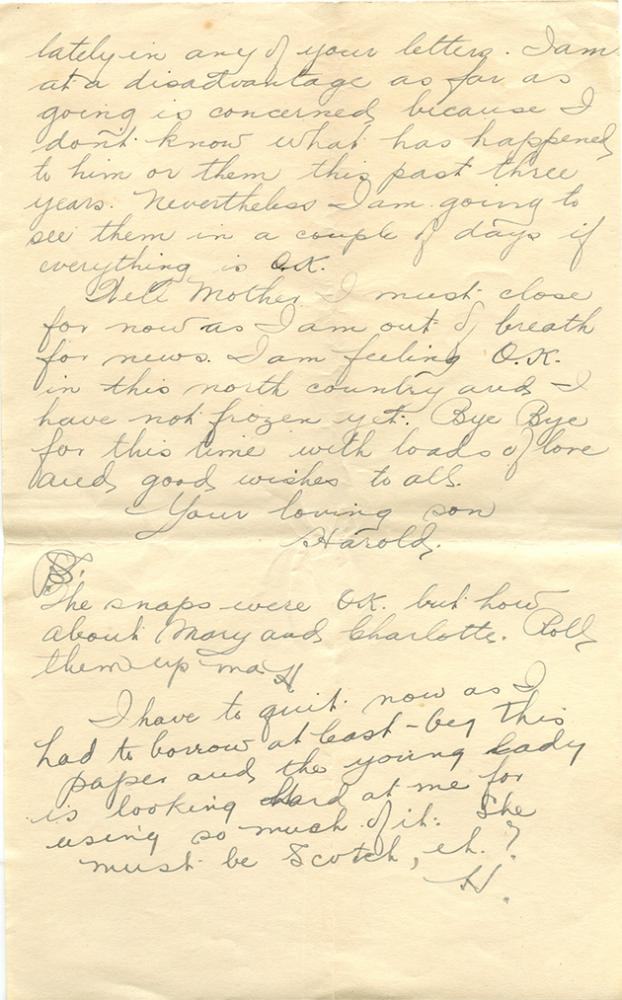 lately in any of your letters. I am
at a disadvantage as far as
going is concerned, because I
don't know what has happened,
to him or them this past three
years. Nevertheless I am going to
see them in a couple of days if
everything is O.K.
Well Mother I must close
for now as I am out of breath
for news. I am feeling O.K.
in this north country and I
have not frozen yet. Bye Bye
for this time with loads of love
and good wishes to all.
Your loving son
Harold.
P.S.
The snaps were O.K. but how
about Mary and Charlotte. Roll
them up ma. H
I have to quit now as I
had to borrow at least - beg this
paper and the young lady
is looking hard at me for
using so much of it. She
must be Scotch, eh.?
H.